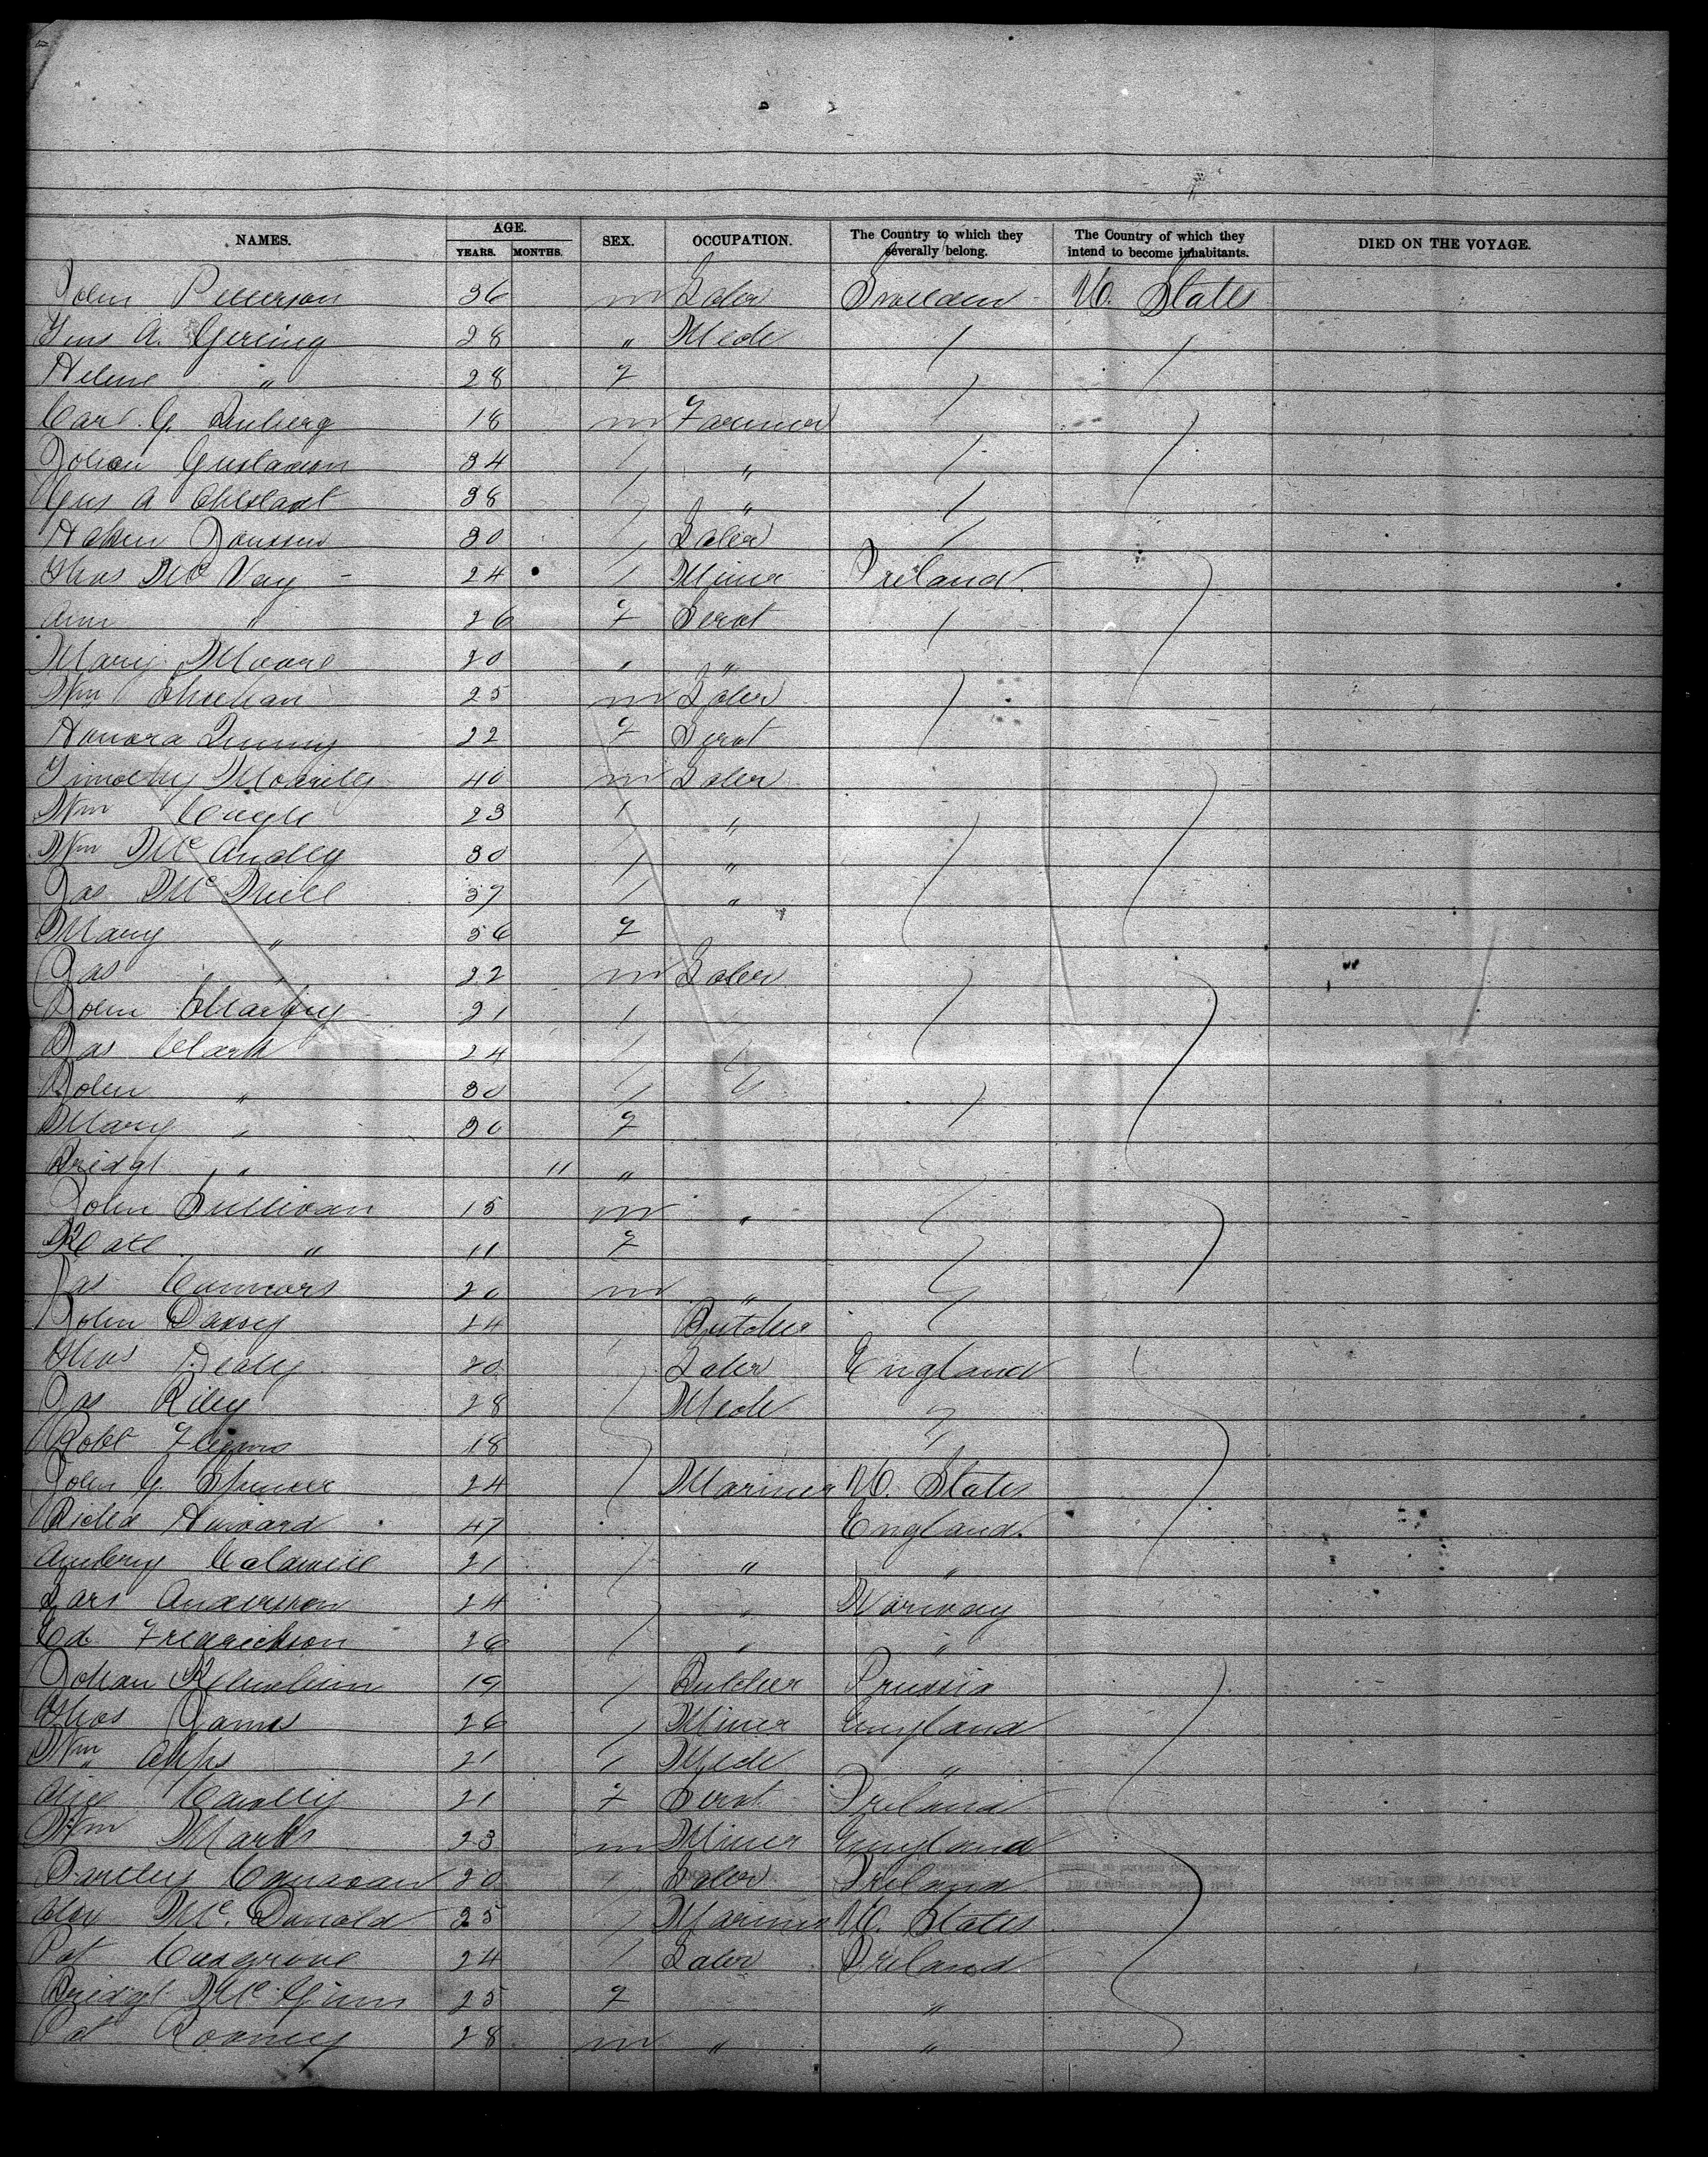 NAMES. AGE. YEARS. MONTHS. SEX. OCCUPATION. The Country to which they severally belong. The Country of which they intend to become inhabitants. DIED ON THE VOYAGE.
John Petterson 36 m Laber Sweeden U. States
A. 28 " Mech
Helene " 28 f
Carl G. 18 m Farmer
Johan Gustavson 34 "
A 38 "
30 Laber
Thos McVay 24 Miner Ireland
Ann " 26 f Servt
Mary Moore 20 " "
Wm Sheehan 25 m Laber
Honora 22 f Servt
Timothy 40 m Laber
Wm 23 "
Wm McAndley 30 "
Jas McNeill 37 "
Mary " 36 f
Jas " 22 m Laber
John 21
Jas Clark 24
John " 30
Mary " 30 f
Bridgt " 11 "
John Sullivan 15 m "
Kate " 11 f
Jas Connors 20 m "
John Darcy 24 Butcher
Thos Healy 20 Laber England
Jas Riley 28 Mech
Robt 18
John G. Spencer 24 Mariner U. States
Richd Howard 47 England
21 " "
Lars Anderson 24 " Norway
Ed. Fredrickson 26 " "
Johan 19 Butcher Prussia
Thos James 26 Miner England
Wm Apps 21 Mech "
Alice 21 f Servt Ireland
Wm Marks 23 m Miner England
Bartley Canavan 20 Laber Ireland
Alex McDonald 25 Mariner U. States
Pat Cosgrove 24 Laber Ireland
Bridgt McGinn 25 f "
Pat Rooney 28 m " "